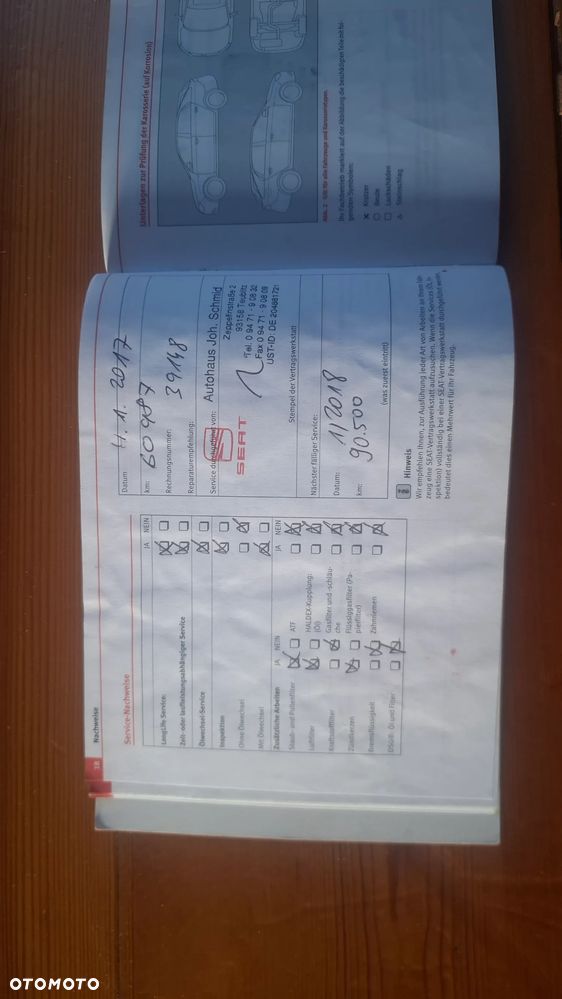 18 Nachweise
Service-Nachweise
JA NEIN
LongLife Service:
Zeit- oder laufleistungsabhängiger Service
Ölwechsel-Service
Inspektion
Ohne Ölwechsel
Mit Ölwechsel
Zusätzliche Arbeiten JA NEIN JA NEIN
Staub- und Pollenfilter ATF
Luftfilter HALDEX-Kupplung:
(Öl)
Kraftstofffilter Gasfilter und -schläu-
che
Zündkerzen Flüssiggasfilter (Pa-
pierfilter)
Bremsflüssigkeit Zahnriemen
DSG®- Öl und Filter
Datum 4. 1. 2017
km: 60 987
Rechnungsnummer: 39148
Reparaturempfehlung:
Service durchgeführt von:
Autohaus Joh. Schmid
Zeppelinstraße 2
93158 Teublitz
Tel. 0 94 71 - 9 08 32
Fax 0 94 71 - 9 08 09
UST-ID: DE 204881721
SEAT
Stempel der Vertragswerkstatt
Nächster fälliger Service:
Datum: 1/2018
km: 90.500
(was zuerst eintritt)
Hinweis
Wir empfehlen Ihnen, zur Ausführung jeder Art von Arbeiten an Ihrem
zeug eine SEAT-Vertragswerkstatt aufzusuchen. Wenn die Services (Öl,
spektion) vollständig bei einer SEAT-Vertragswerkstatt durchgeführt
bedeutet dies einen Mehrwert für Ihr Fahrzeug.
Unterlagen zur Prüfung der Karosserie (auf Korrosion)
Abb. 2 Gilt für alle Fahrzeuge und Karosserietypen.
Ihr Fachbetrieb markiert auf der Abbildung die beschädigten Teile mit fol-
genden Symbolen:
Kratzer
Beule
Lackschäden
Steinschlag
OTOMOTO